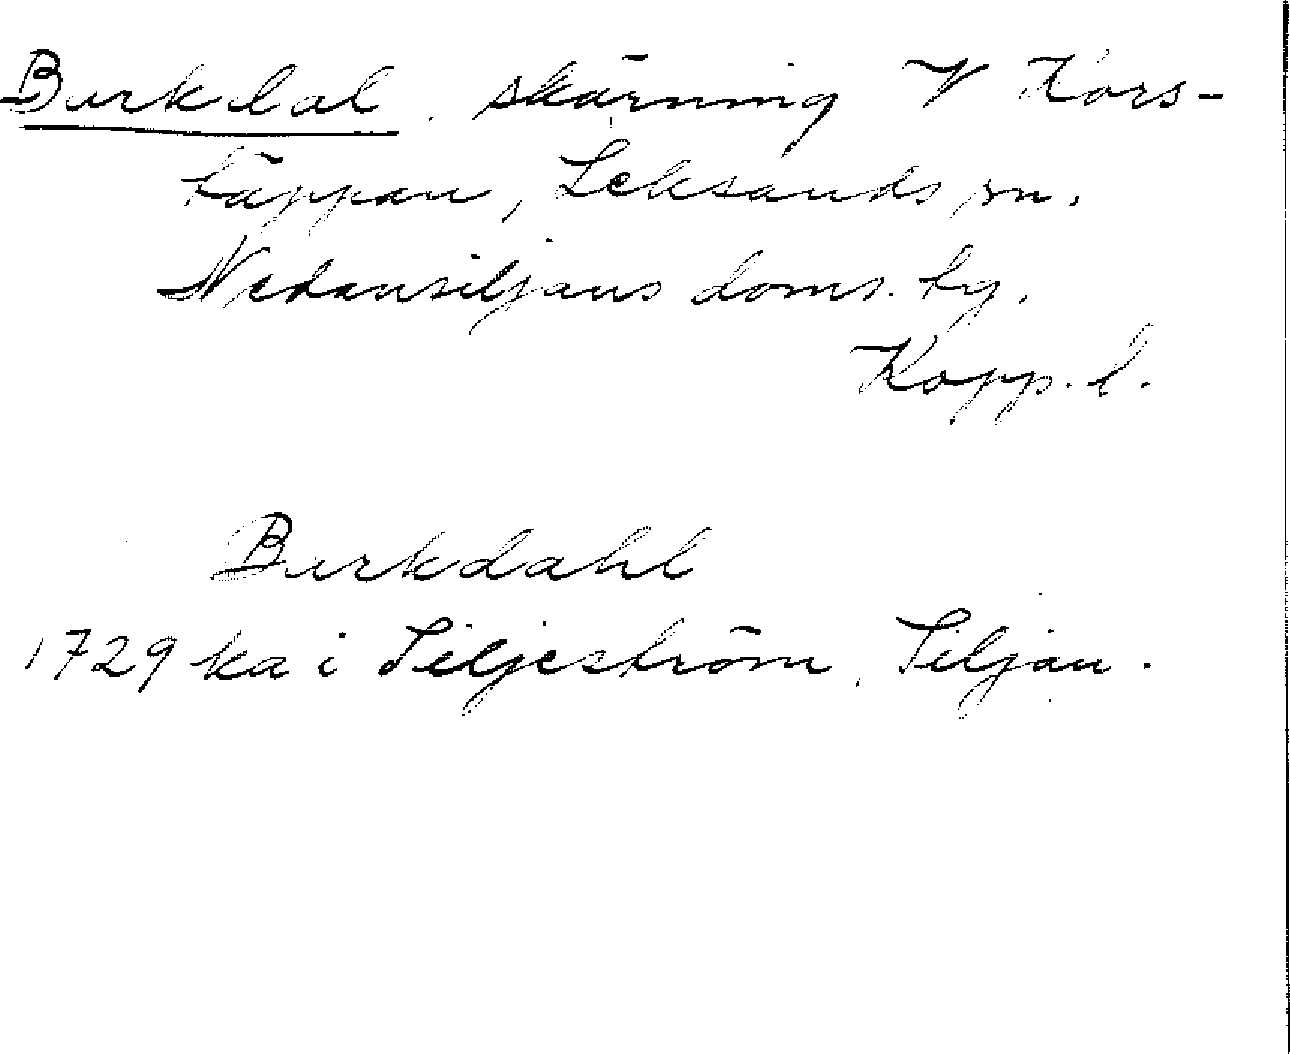 Burkdal, skärning V Kors-
täppan, Leksands sn.
Nedansiljans doms. tg.
Kopp. l.
Burkdahl
1729 ka i Siljeström, Siljan.